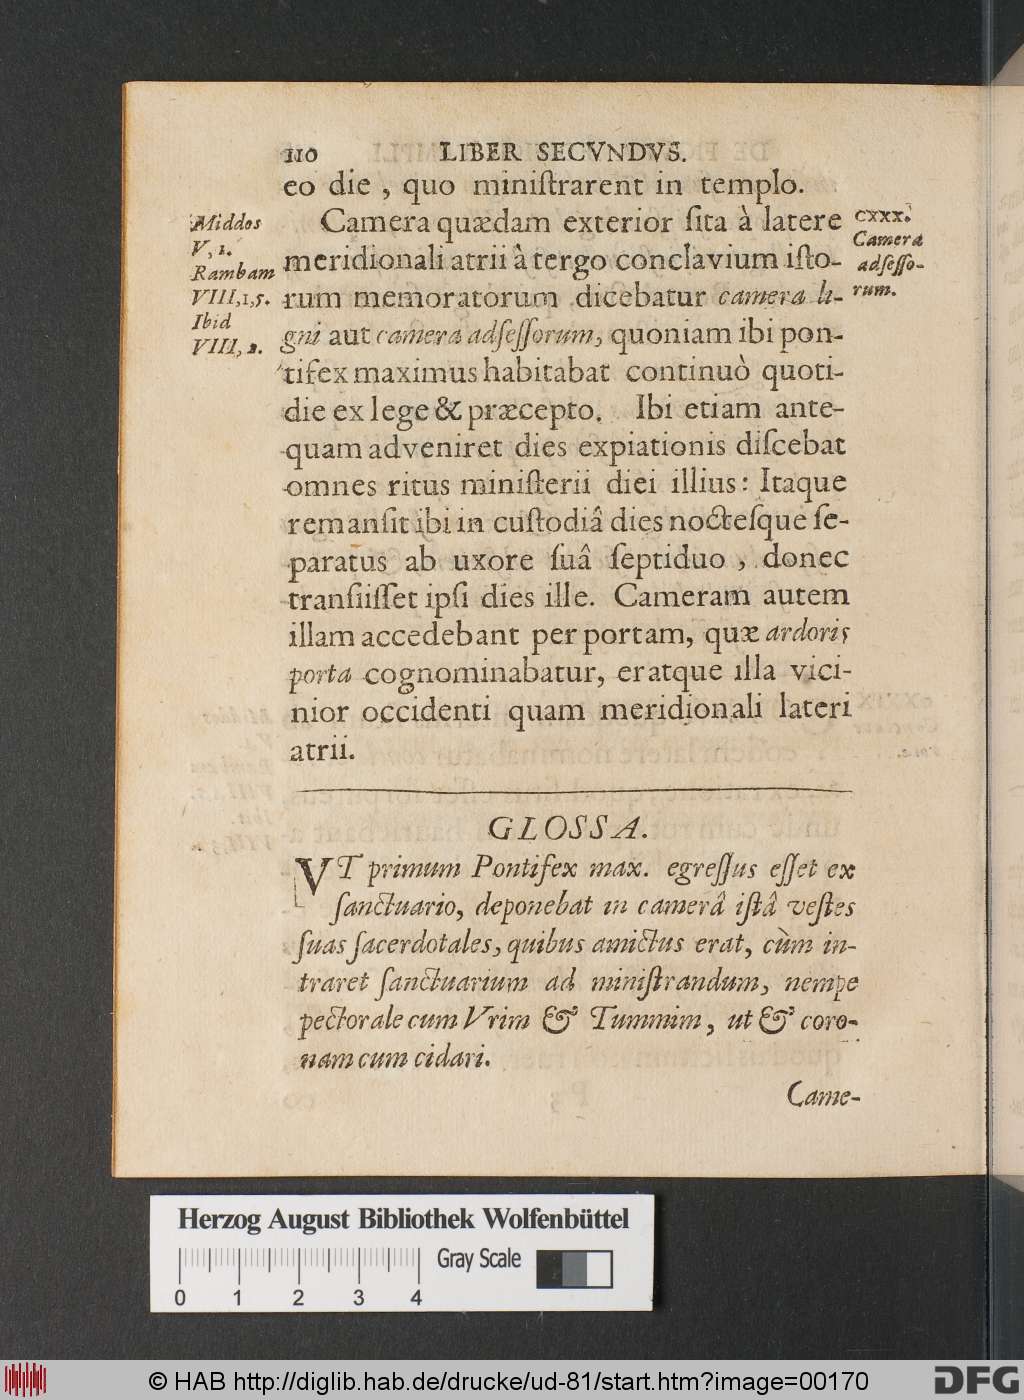 110 LIBER SECVNDVS.
eo die , quo miniſtrarent in templo.
Middos
V, 1.
Rambam
VIII,1,5.
Ibid
VIII, 2.
Camera quædam exterior ſita à latere
meridionali atrii â tergo conclavium iſto-
rum memoratorum dicebatur camera li-
gni aut camera adſeſſorum, quoniam ibi pon-
tifex maximus habitabat continuò quoti-
die ex lege & præcepto. Ibi etiam ante-
quam adveniret dies expiationis diſcebat
omnes ritus miniſterii diei illius: Itaque
remanſit ibi in cuſtodiâ dies noctesque ſe-
paratus ab uxore ſuâ ſeptiduo , donec
tranſiiſſet ipſi dies ille. Cameram autem
illam accedebant per portam, quæ ardoris
porta cognominabatur, eratque illa vici-
nior occidenti quam meridionali lateri
atrii.
CXXX.
Camera
adſeſſo-
rum.
GLOSSA.
VT primum Pontifex max. egreſſus eſſet ex
ſanctuario, deponebat in camerâ iſtâ veſtes
ſuas ſacerdotales, quibus amictus erat, cùm in-
traret ſanctuarium ad miniſtrandum, nempe
pectorale cum Vrim & Tummim, ut & coro-
nam cum cidari.
Came-
Herzog August Bibliothek Wolfenbüttel
Gray Scale
0 1 2 3 4
© HAB http://diglib.hab.de/drucke/ud-81/start.htm?image=00170
DFG